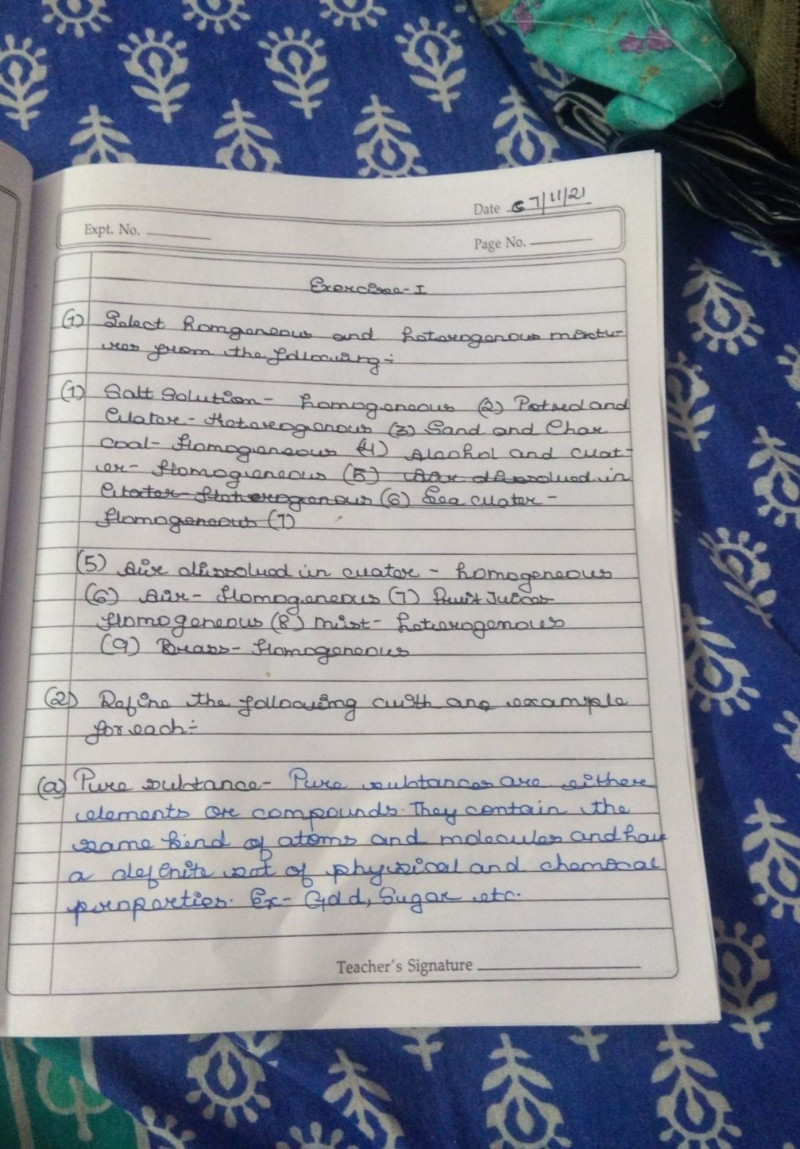 Date 07/11/21
Expt. No.
Page No.
Exercise-I
(1) Select homgeneous and heterogenous mixtu-
res from the following:-
(1) Salt Solution- homogeneous (2) and
Water- Heterogenous (3) Sand and Char
coal- Homogeneous (4) Alcohol and wat-
er- Homogieneous (5) Air dissolued in
Water- Heterogenous (6) Sea water-
Homogeneous (7)
(5) Air dissolued in water - homogeneous
(6) Air- Homogeneous (7) Fruit Juices
Homogeneous (8) mist- heterogenous
(9) Brass- Homogeneous
(2) Define the following with one example
for each:-
(a) Pure subtance- Pure subtances are either
elements or compounds. They contain the
same kind of atoms and molecules and have
a definite set of physical and chemical
properties. Ex- Gold, Sugar etc.
Teacher's Signature